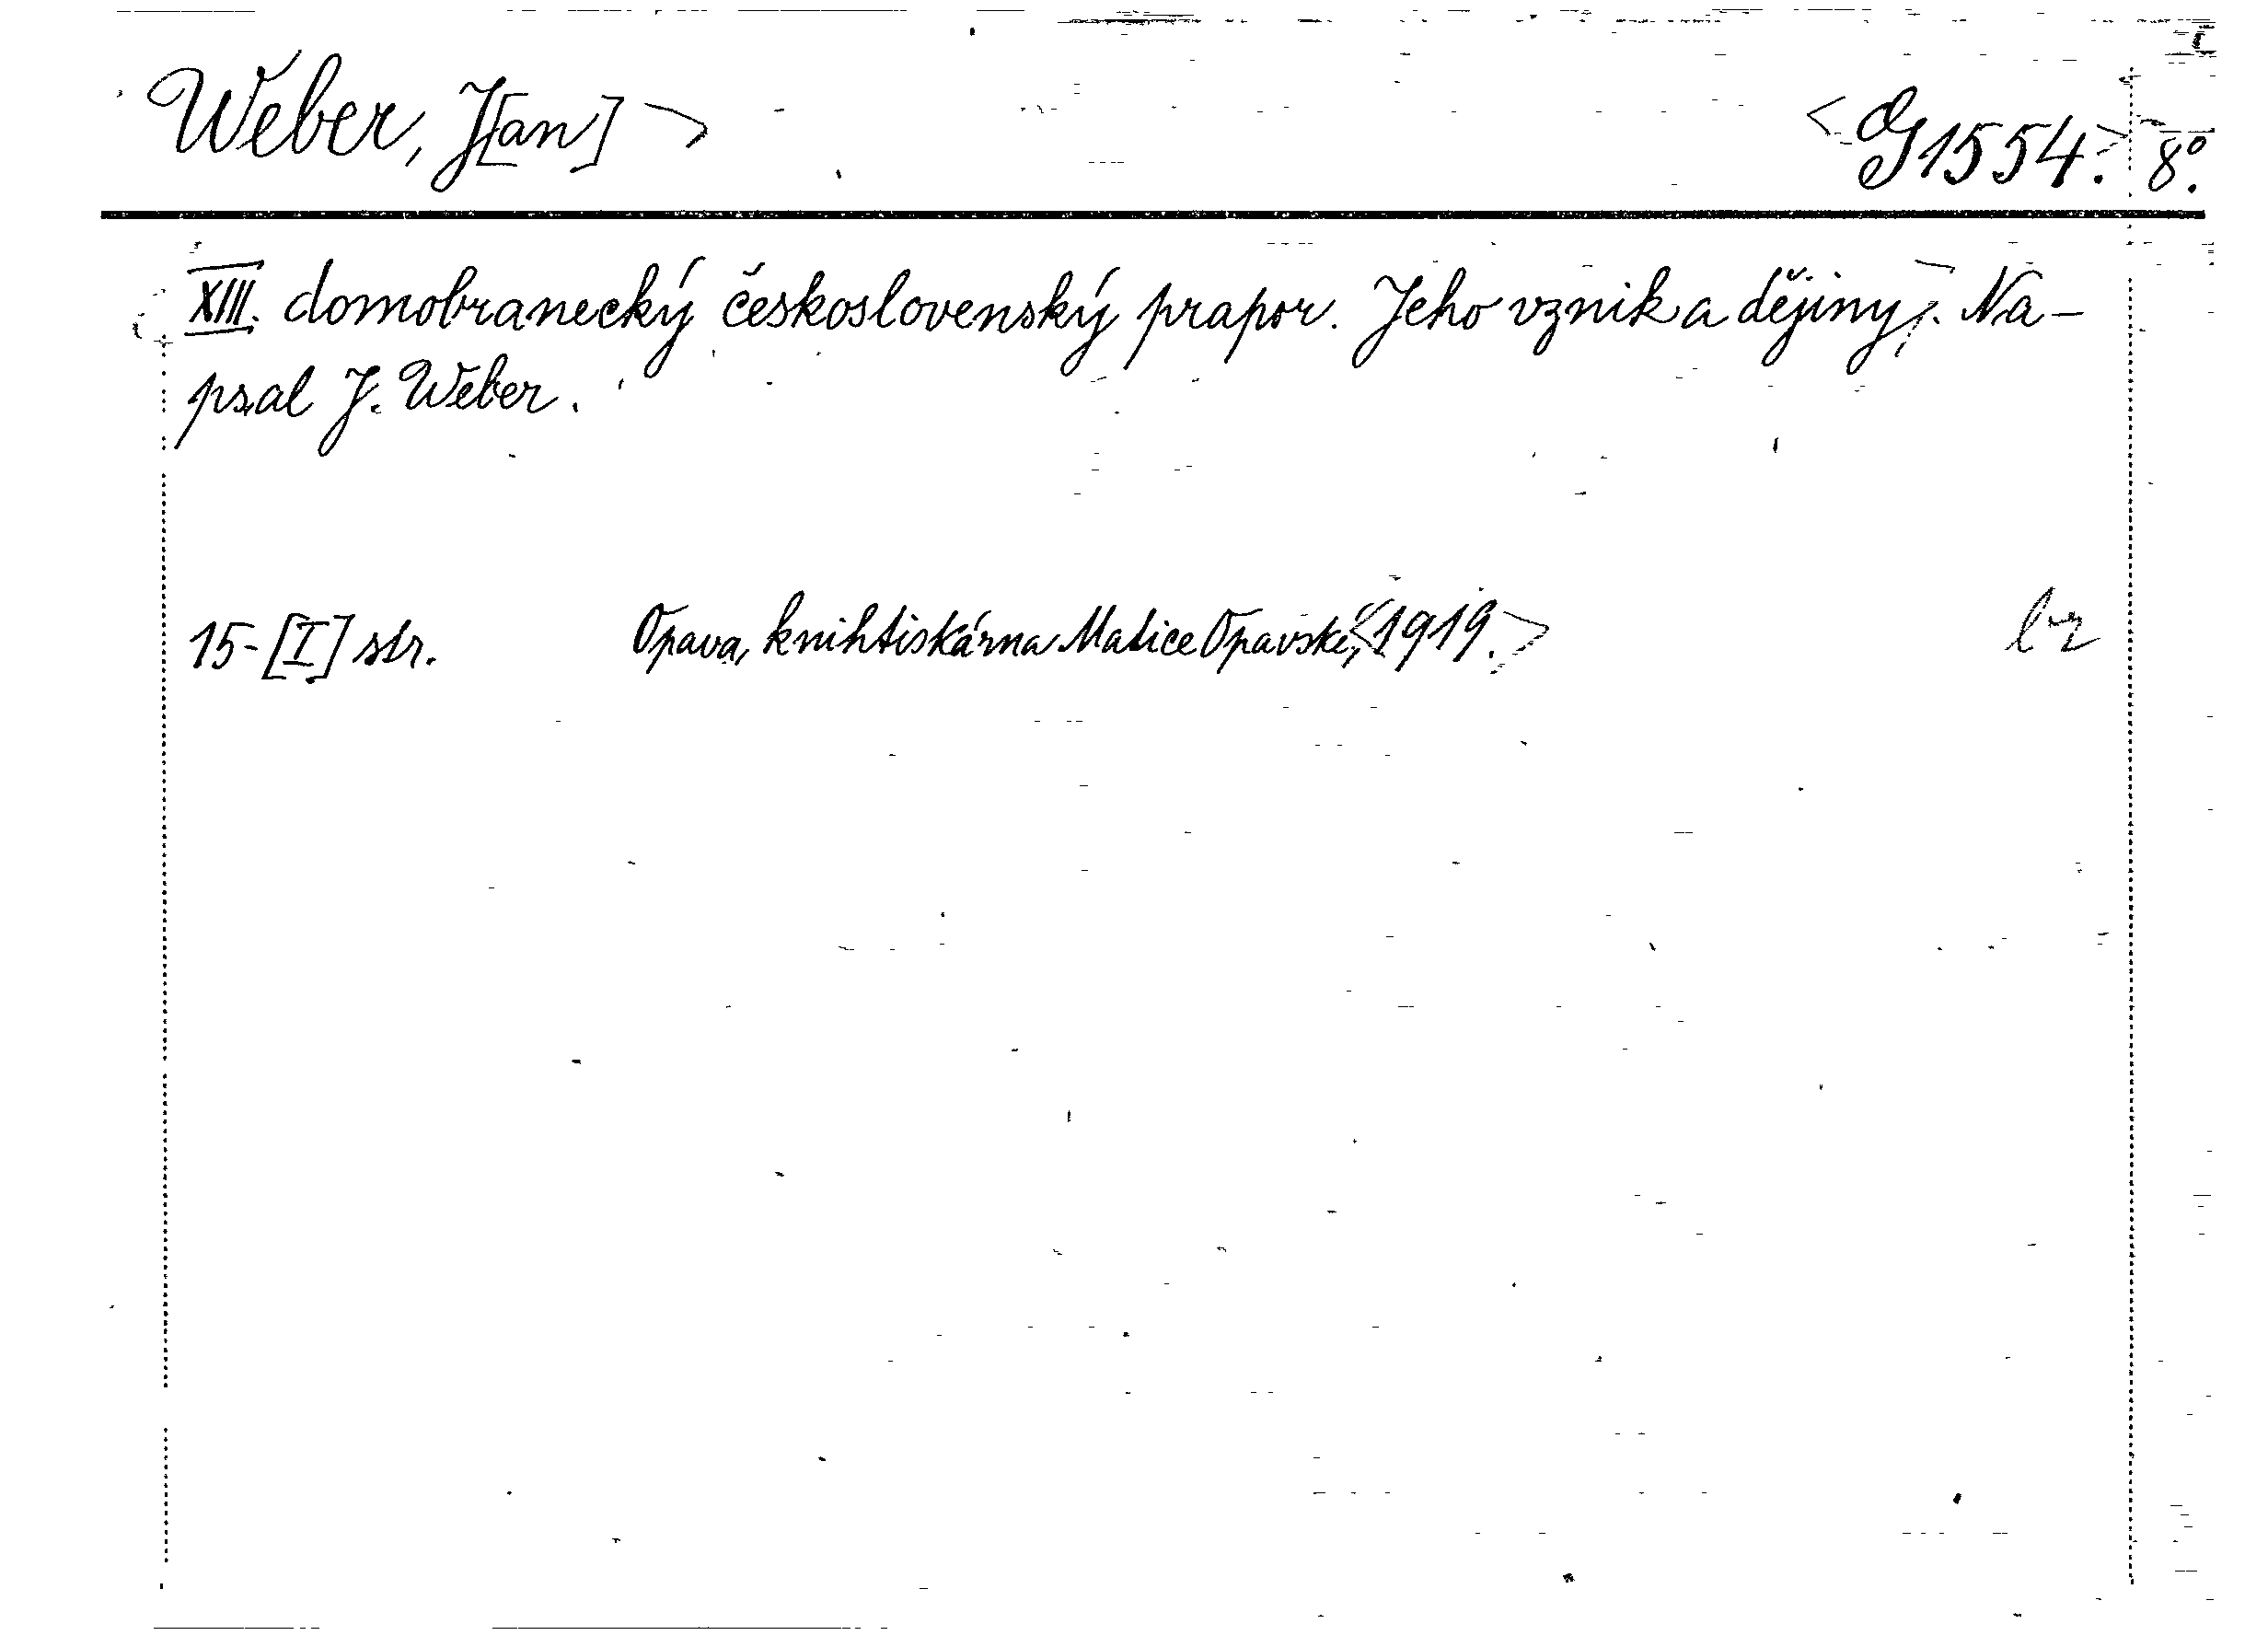 Weber, J[an] G 1554. 8°.
XIII. domobranecký československý prapor. Jeho vznik a dějiny. Na-
psal J. Weber.
15-[I] str. Opava, knihtiskárna Matice Opavské, 1919.